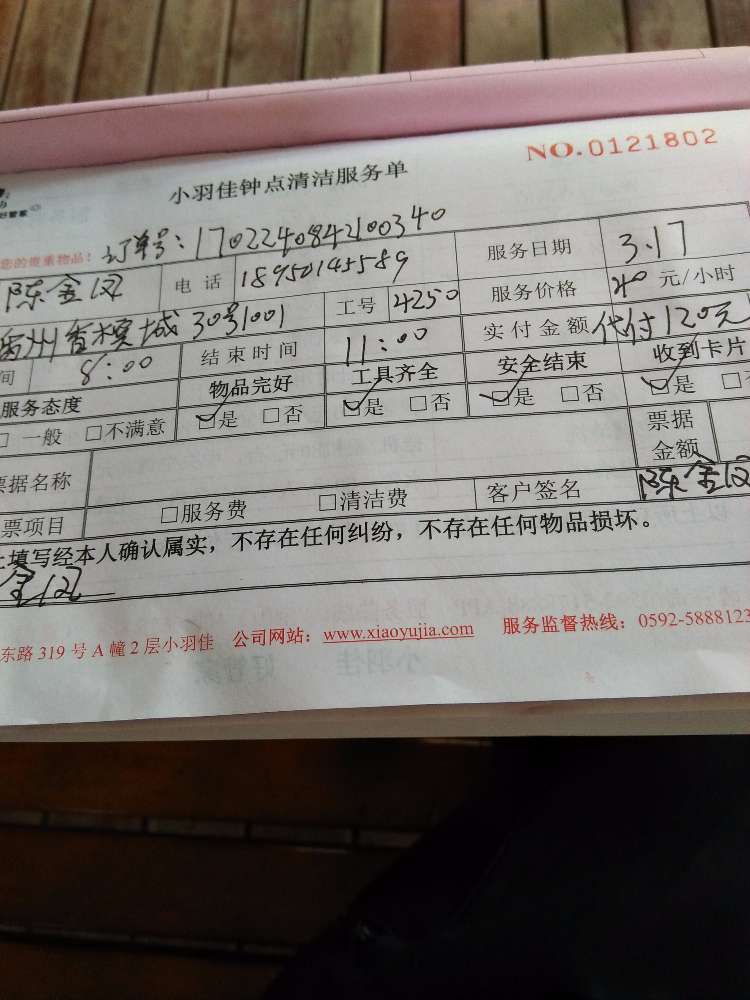 NO.0121802
小羽佳钟点清洁服务单
好管家
您的贵重物品! 订单号:1702240842100340
陈金凤 电话 18950145589 服务日期 3.17
州香槟城30号1001 工号 4250 服务价格 40 元/小时
间 8:00 结束时间 11:00 实付金额 代付120元
服务态度 物品完好 工具齐全 安全结束 收到卡片
□一般 □不满意 ☑是 □否 ☑是 □否 ☑是 □否 ☑是 □否
票据名称 票据金额
票项目 □服务费 □清洁费 客户签名 陈金凤
上填写经本人确认属实,不存在任何纠纷,不存在任何物品损坏。
金凤
东路319号A幢2层小羽佳 公司网站:www.xiaoyujia.com 服务监督热线:0592-5888123